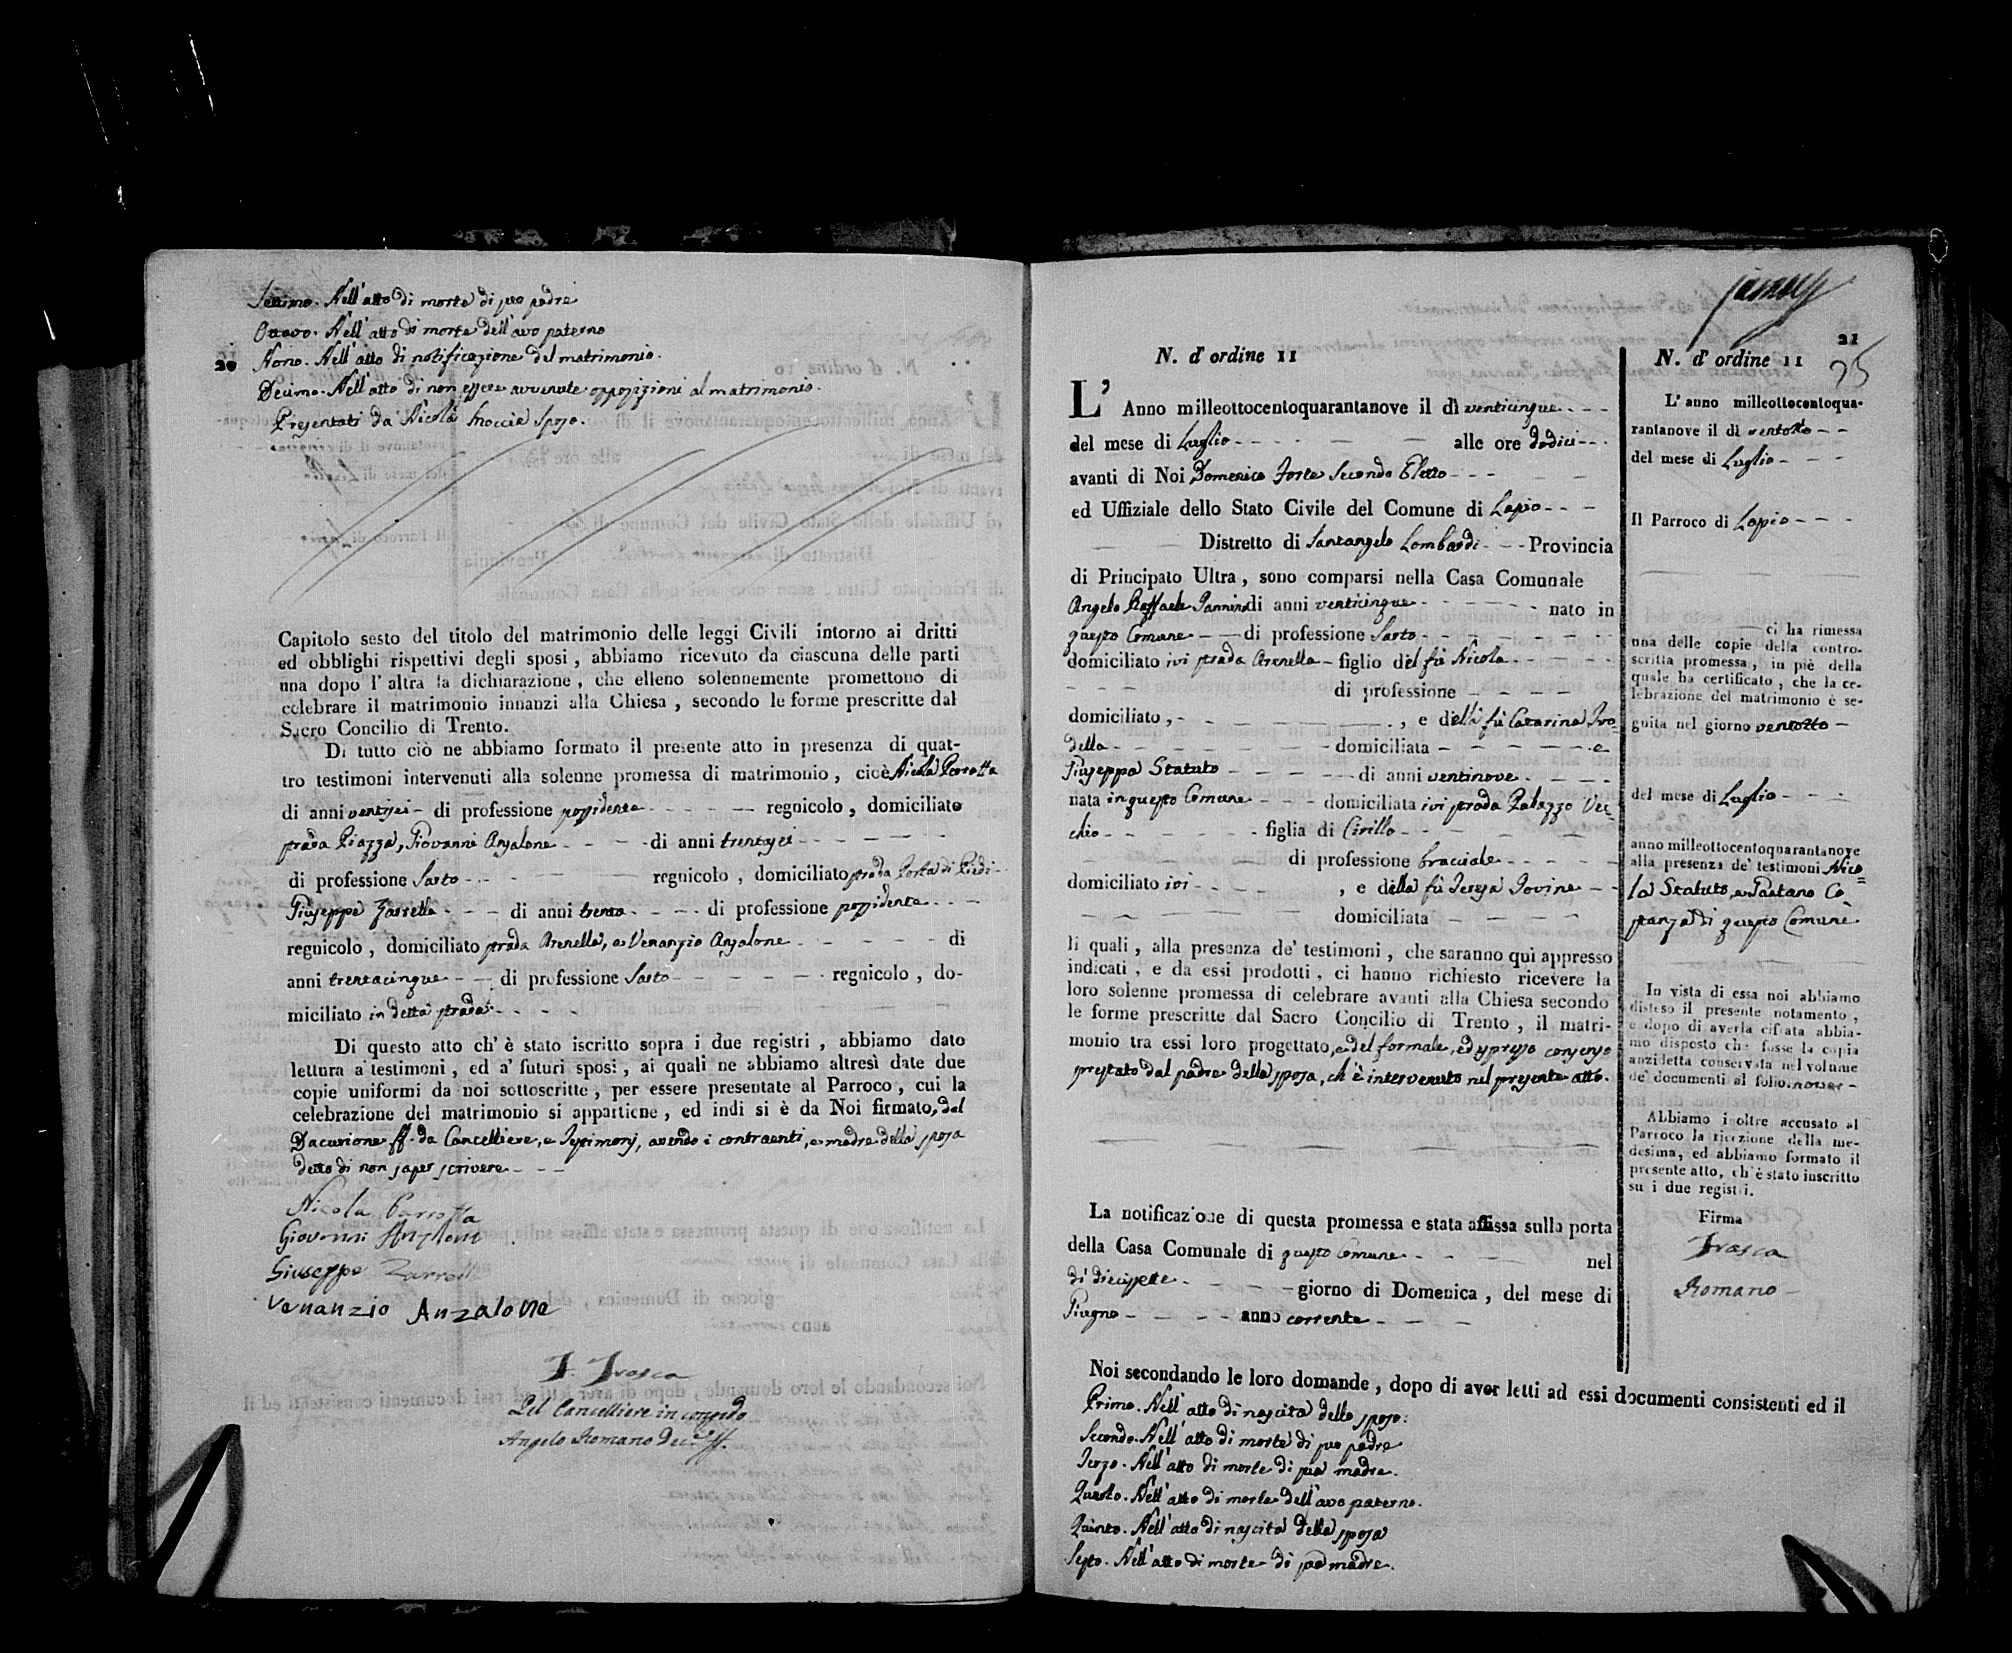 Settimo. Nell' atto di morte di suo padre
Ottavo. Nell' atto di morte dell' avo paterno
20 Nono. Nell' atto di notificazione del matrimonio.
Decimo. Nell' atto di non essere avvenute opposizioni al matrimonio.
Presentati da Nicola Moccia Sposo.
Capitolo sesto del titolo del matrimonio delle leggi Civili intorno ai dritti
ed obblighi rispettivi degli sposi, abbiamo ricevuto da ciascuna delle parti
una dopo l' altra la dichiarazione, che elleno solennemente promettono di
celebrare il matrimonio innanzi alla Chiesa, secondo le forme prescritte dal
Sacro Concilio di Trento.
Di tutto ciò ne abbiamo formato il presente atto in presenza di quat-
tro testimoni intervenuti alla solenne promessa di matrimonio, cioè Nicola Parrotta
di anni ventisei - di professione possidente - - - regnicolo, domiciliato
strada Piazza, Giovanni Anzalone - - - di anni trentasei - - -
di professione Sarto - - - regnicolo, domiciliato strada Porta di Piedi -
Giuseppe Zarrella - - - di anni trenta - - - di professione possidente - - -
regnicolo, domiciliato strada Arenella, e Venanzio Anzalone - - - di
anni trentacinque - - di professione Sarto - - - regnicolo, do-
miciliato in detta strada - - -
Di questo atto ch' è stato iscritto sopra i due registri, abbiamo dato
lettura a' testimoni, ed a' futuri sposi, ai quali ne abbiamo altresì date due
copie uniformi da noi sottoscritte, per essere presentate al Parroco, cui la
celebrazione del matrimonio si appartiene, ed indi si è da Noi firmato, dal
Decurione ff. da Cancelliere, e Testimonj, avendo i contraenti, e madre della sposa
detto di non saper scrivere - - -
Nicola Parrotta
Giovanni Anzalone
Giuseppe Zarrella
Venanzio Anzalone
F. Frasca
Pel Cancelliere in congedo
Angelo Romano Dec.e ff.
21
25
N. d' ordine 11
L' Anno milleottocentoquarantanove il dì venticinque - - -
del mese di Luglio - - - alle ore dodici - - -
avanti di Noi Domenico Forte Secondo Eletto - - -
ed Uffiziale dello Stato Civile del Comune di Lapio - - -
Distretto di Santangelo Lombardi - - - Provincia
di Principato Ultra, sono comparsi nella Casa Comunale
Angelo Raffaele Iannino di anni venticinque - - - nato in
questo Comune - - di professione Sarto - - -
domiciliato ivi strada Arenella - figlio del fù Nicola - - -
- - - di professione - - -
domiciliato, - - -, e della fù Catarina Iro=
della - - - domiciliata - - - e
Giuseppa Statuto - - - di anni ventinove - - -
nata in questo Comune - - - domiciliata ivi strada Palazzo Vec=
chio - - - figlia di Cirillo - - -
- - - di professione bracciale - - -
domiciliato ivi - - -, e della fù Teresa Iovine - -
- - - domiciliata - - -
li quali, alla presenza de' testimoni, che saranno qui appresso
indicati, e da essi prodotti, ci hanno richiesto ricevere la
loro solenne promessa di celebrare avanti alla Chiesa secondo
le forme prescritte dal Sacro Concilio di Trento, il matri-
monio tra essi loro progettato, e del formale, ed espresso consenso
prestato dal padre della sposa, ch' è intervenuto nel presente atto.
La notificazione di questa promessa e stata affissa sulla porta
della Casa Comunale di questo Comune - - - nel
dì diecissette - - - giorno di Domenica, del mese di
Giugno - - - anno corrente - - -
Noi secondando le loro domande, dopo di aver letti ad essi documenti consistenti ed il
Primo. Nell' atto di nascita dello sposo:
Secondo. Nell' atto di morte di suo padre
Terzo. Nell' atto di morte di sua madre.
Quarto. Nell' atto di morte dell' avo paterno.
Quinto. Nell' atto di nascita della sposa
Sesto. Nell' atto di morte di sua madre.
N. d' ordine 11
L' anno milleottocentoqua-
rantanove il dì ventotto - -
del mese di Luglio - - -
Il Parroco di Lapio - - -
ci ha rimessa
una delle copie della contro-
scritta promessa, in piè della
quale ha certificato, che la ce-
lebrazione del matrimonio è se-
guita nel giorno ventotto -
del mese di Luglio - - -
anno milleottocentoquarantanove
alla presenza de' testimoni Nico=
la Statuto, e Gaetano Co=
stanza di questo Comune
In vista di essa noi abbiamo
disteso il presente notamento,
e dopo di averla cifrata abbia-
mo disposto che fosse la copia
anzidetta conservata nel volume
de' documenti al folio nove -
Abbiamo inoltre accusato al
Parroco la ricezione della me-
desima, ed abbiamo formato il
presente atto, ch' è stato inscritto
su i due registri.
Firma
Frasca
Romano